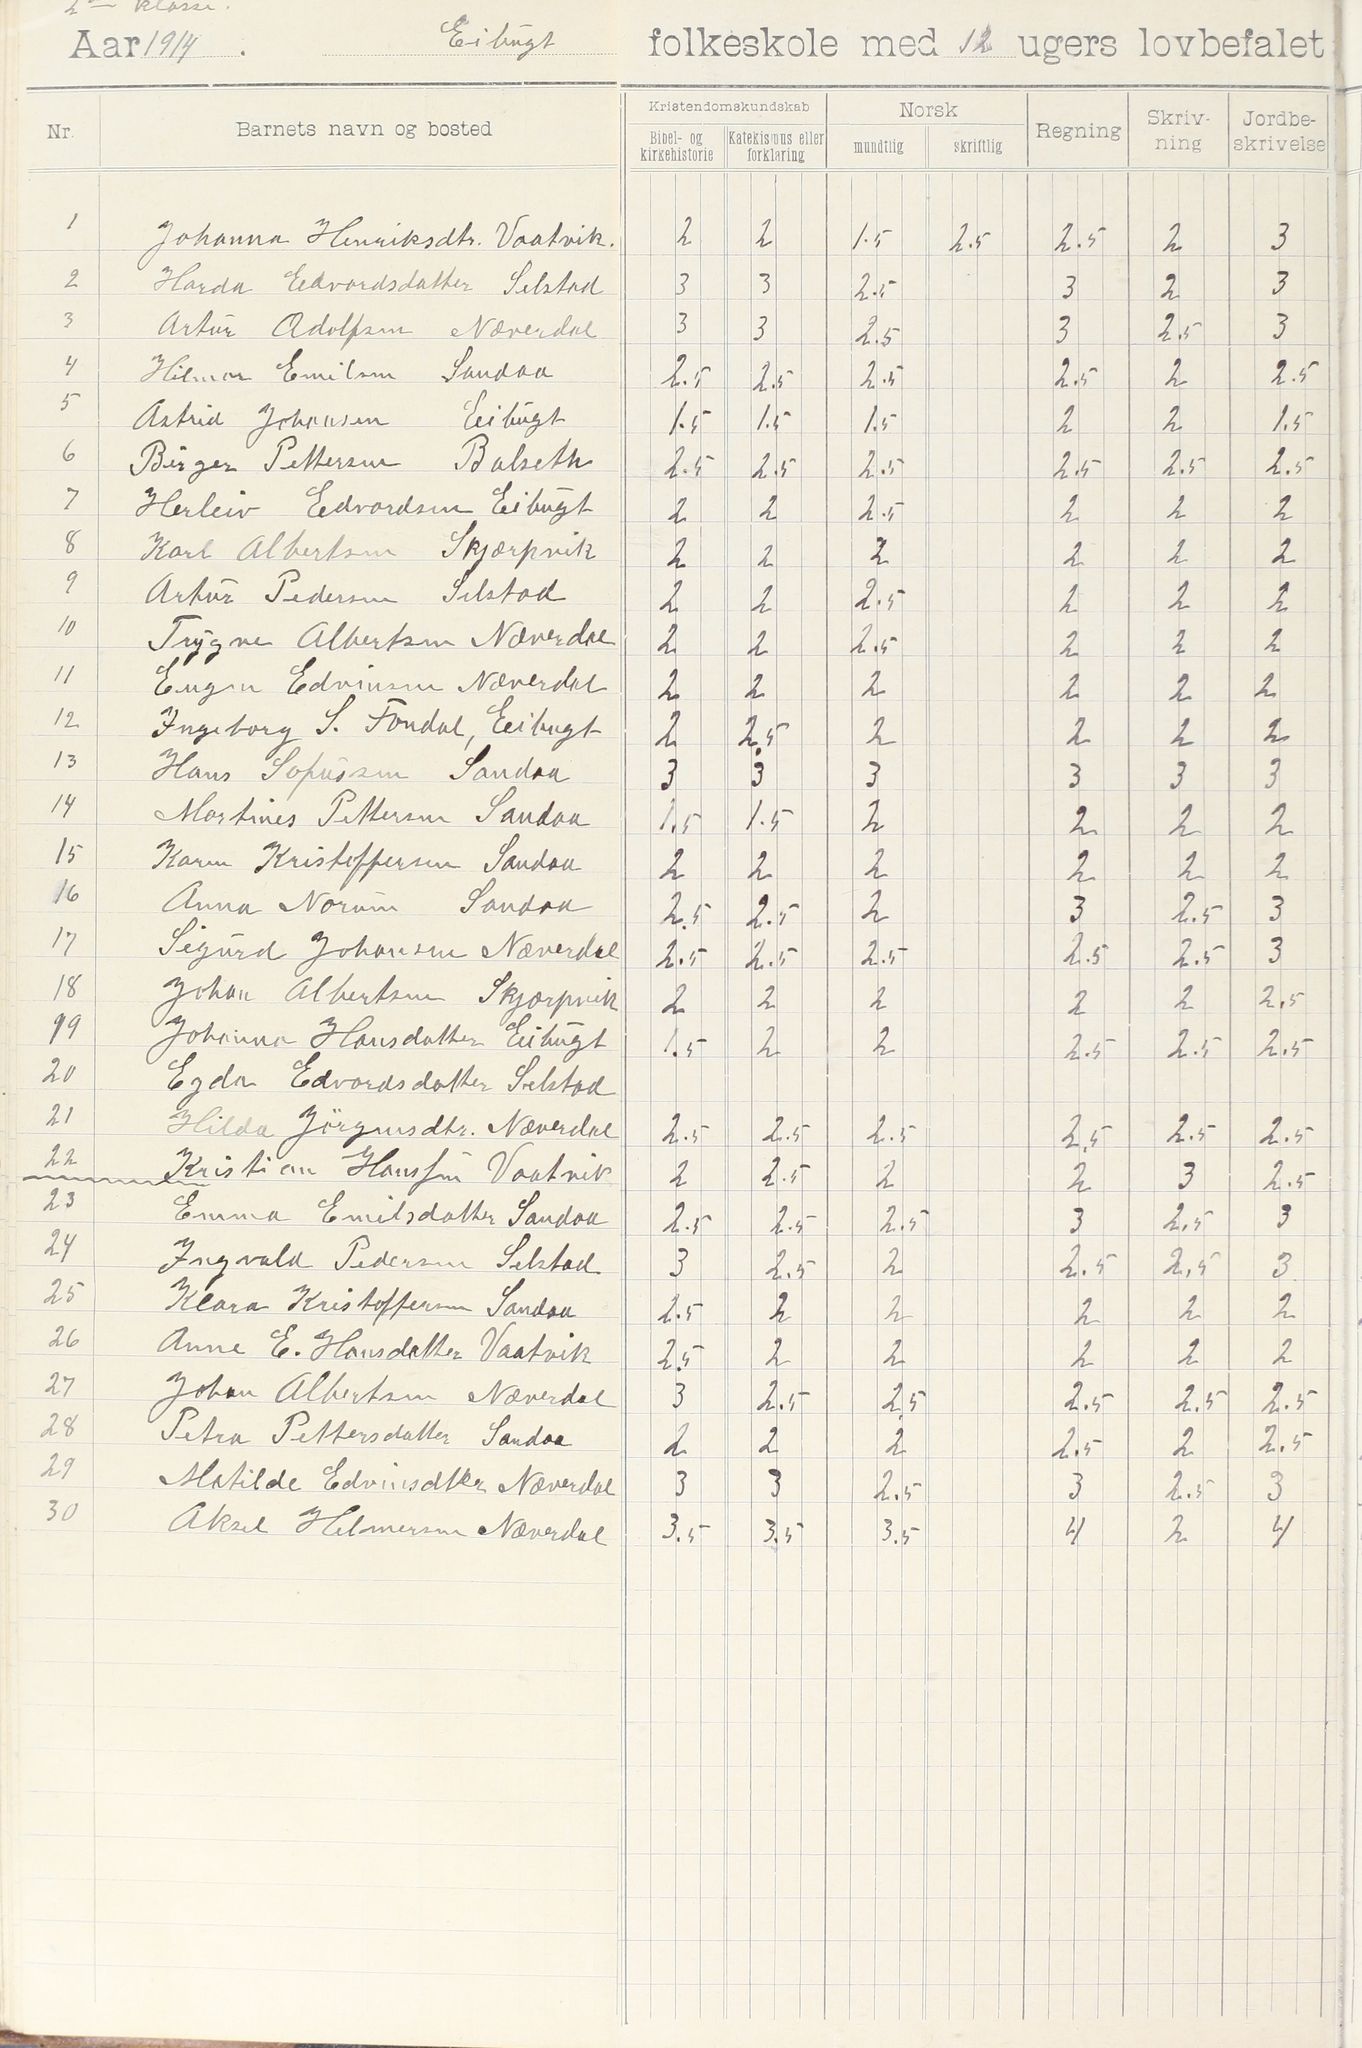 2den klasse.
Aar 1914. Eibugt folkeskole med 12 ugers lovbefalet
Nr. Barnets navn og bosted Kristendomskundskab Norsk Regning Skriv-ning Jordbe-skrivelse
Bibel- og kirkehistorie Katekismus eller forklaring mundtlig skriftlig
1 Johanna Henriksdtr. Vaatvik. 2 2 1.5 2.5 2.5 2 3
2 Harda Edvardsdatter Selstad 3 3 2.5 3 2 3
3 Artur Adolfsen Næverdal 3 3 2.5 3 2.5 3
4 Hilmar Emilsen Sandaa 2.5 2.5 2.5 2.5 2 2.5
5 Astrid Johansen Eibugt 1.5 1.5 1.5 2 2 1.5
6 Birger Pettersen Balseth 2.5 2.5 2.5 2.5 2.5 2.5
7 Herleiv Edvardsen Eibugt 2 2 2.5 2 2 2
8 Karl Albertsen Skjærpvik 2 2 2 2 2 2
9 Artur Pedersen Selstad 2 2 2.5 2 2 2
10 Trygve Albertsen Næverdal 2 2 2.5 2 2 2
11 Eugen Edvinsen Næverdal 2 2 2 2 2 2
12 Ingeborg S. Fondal, Eibugt 2 2.5 2 2 2 2
13 Hans Sofussen Sandaa 3 3 3 3 3 3
14 Martines Pettersen Sandaa 1.5 1.5 2 2 2 2
15 Karen Kristoffersen Sandaa 2 2 2 2 2 2
16 Anna Norum Sandaa 2.5 2.5 2 3 2.5 3
17 Sigurd Johansen Næverdal 2.5 2.5 2.5 2.5 2.5 3
18 Johan Albertsen Skjærpvik 2 2 2 2 2 2.5
19 Johanna Hansdatter Eibugt 1.5 2 2 2.5 2.5 2.5
20 Egda Edvardsdatter Selstad
21 Hilda Jörgensdtr. Næverdal 2.5 2.5 2.5 2.5 2.5 2.5
22 Kristian Hanssen Vaatvik 2 2.5 2 2 3 2.5
23 Emma Emilsdatter Sandaa 2.5 2.5 2.5 3 2.5 3
24 Ingvald Pedersen Selstad 3 2.5 2 2.5 2.5 3
25 Klara Kristoffersen Sandaa 2.5 2 2 2 2 2
26 Anne E. Hansdatter Vaatvik 2.5 2 2 2 2 2
27 Johan Albertsen Næverdal 3 2.5 2.5 2.5 2.5 2.5
28 Petra Pettersdatter Sandaa 2 2 2 2.5 2 2.5
29 Matilde Edvinsdtter Næverdal 3 3 2.5 3 2.5 3
30 Aksel Hilmersen Næverdal 3.5 3.5 3.5 4 2 4